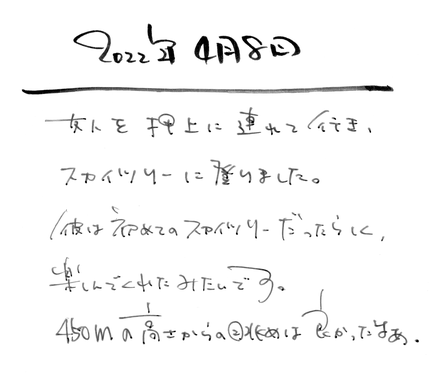 2022年4月8日
友人を押上に連れて行き、
スカイツリーに登りました。
彼は初めてのスカイツリーだったらしく、
楽しんでくれたみたいです。
450mの高さからの眺めは良かったなあ。